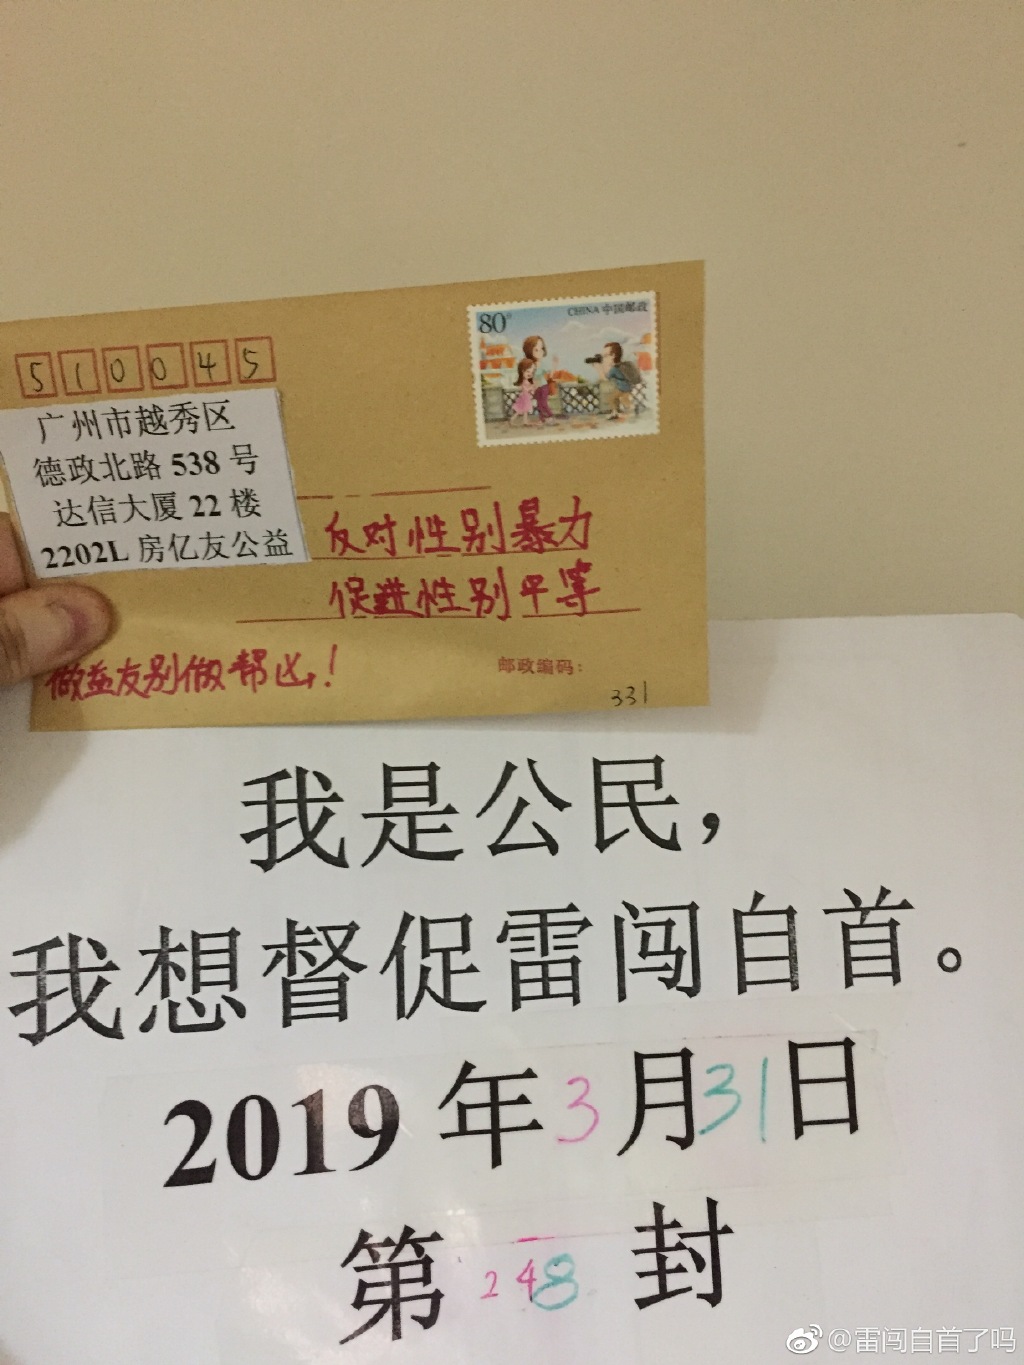 80
CHINA 中国邮政
510045
广州市越秀区
德政北路 538 号
达信大厦 22 楼
2202L 房亿友公益
反对性别暴力
促进性别平等
做益友别做帮凶！
邮政编码：
331
我是公民，
我想督促雷闯自首。
2019 年 3 月 31 日
第 248 封
@雷闯自首了吗